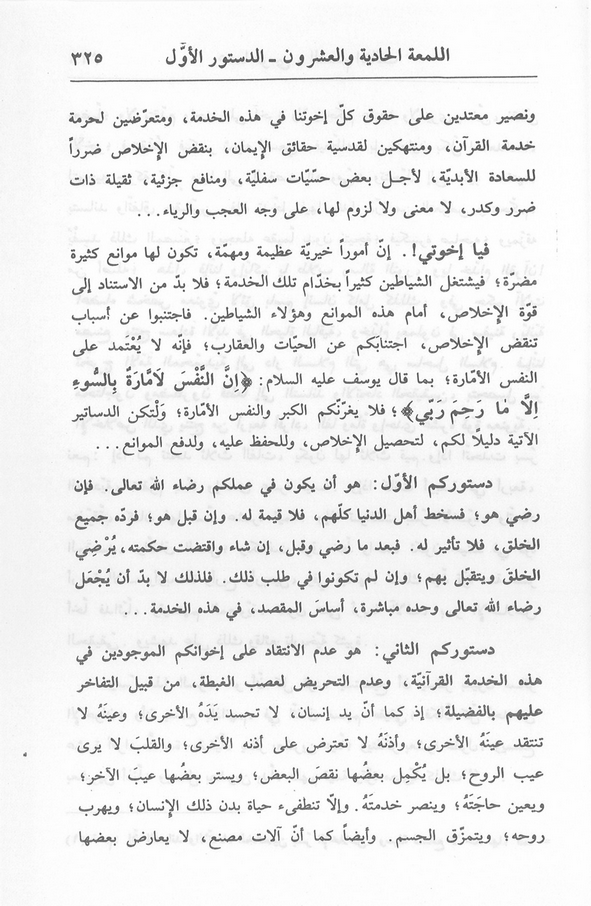 اللمعة الحادية والعشرون - الدستور الأوَّل ٣٢٥
ونصير معتدين على حقوق كلّ إخوتنا في هذه الخدمة، ومتعرّضين لحرمة
خدمة القرآن، ومنتهكين لقدسية حقائق الإيمان، بنقض الإخلاص ضرراً
للسعادة الأبديّة، لأجـل بعض حسّيّات سفليّة، ومنافع جزئية، ثقيلة ذات
ضرر وكدر، لا معنى ولا لزوم لها، على وجه العجب والرياء...
فيا إخوتي!. إنّ أموراً خيريّة عظيمة ومهمّة، تكون لها موانع كثيرة
مضرّة؛ فيشتغل الشياطين كثيراً بخدّام تلك الخدمة؛ فلا بدّ من الاستناد إلى
قوّة الإخلاص، أمام هذه الموانع وهؤلاء الشياطين. فاجتنبوا عن أسباب
تنقض الإخلاص، اجتنابكم عن الحيّات والعقارب؛ فإنه لا يُعْتَمد على
النفس الأمّارة؛ بما قال يوسف عليه السلام: ﴿إِنَّ النَّفْسَ لَأَمَّارَةٌ بِالسُّوءِ
إِلَّا مَا رَحِمَ رَبِّي﴾؛ فلا يغرّنّكم الكبر والنفس الأمّارة؛ وَلْتكن الدساتير
الآتية دليلاً لكم، لتحصيل الإخلاص، وللحفظ عليه، ولدفع الموانع...
دستوركم الأوّل: هو أن يكون في عملكم رضاء الله تعالى. فإن
رضي هو؛ فسخط أهل الدنيا كلّهم، فلا قيمة له. وإن قبل هو؛ فردّه جميع
الخلق، فلا تأثير له. فبعد ما رضي وقبل، إن شاء واقتضت حكمته، يُرْضِي
الخلقَ ويتقبّل بهم؛ وإن لم تكونوا في طلب ذلك. فلذلك لا بدّ أن يُجْعَل
رضاء الله تعالى وحده مباشرة، أساسَ المقصد، في هذه الخدمة...
دستوركم الثاني: هو عدم الانتقاد على إخوانكم الموجودين في
هذه الخدمة القرآنيّة، وعدم التحريض لعصب الغبطة، من قبيل التفاخر
عليهم بالفضيلة؛ إذ كما أنّ يد إنسان، لا تحسد يَدَهُ الأخرى؛ وعينَهُ لا
تنتقد عينَهُ الأخرى؛ وأذنَهُ لا تعترض على أذنه الأخرى؛ والقلبَ لا يرى
عيب الروح؛ بل يُكْمِل بعضُها نقصَ البعض؛ ويستر بعضُها عيبَ الآخر؛
ويعين حاجَتَهُ؛ وينصر خدمتَهُ. وإلّا تنطفىء حياة بدن ذلك الإنسان؛ ويهرب
روحه؛ ويتمزّق الجسم. وأيضاً كما أنّ آلات مصنع، لا يعارض بعضها